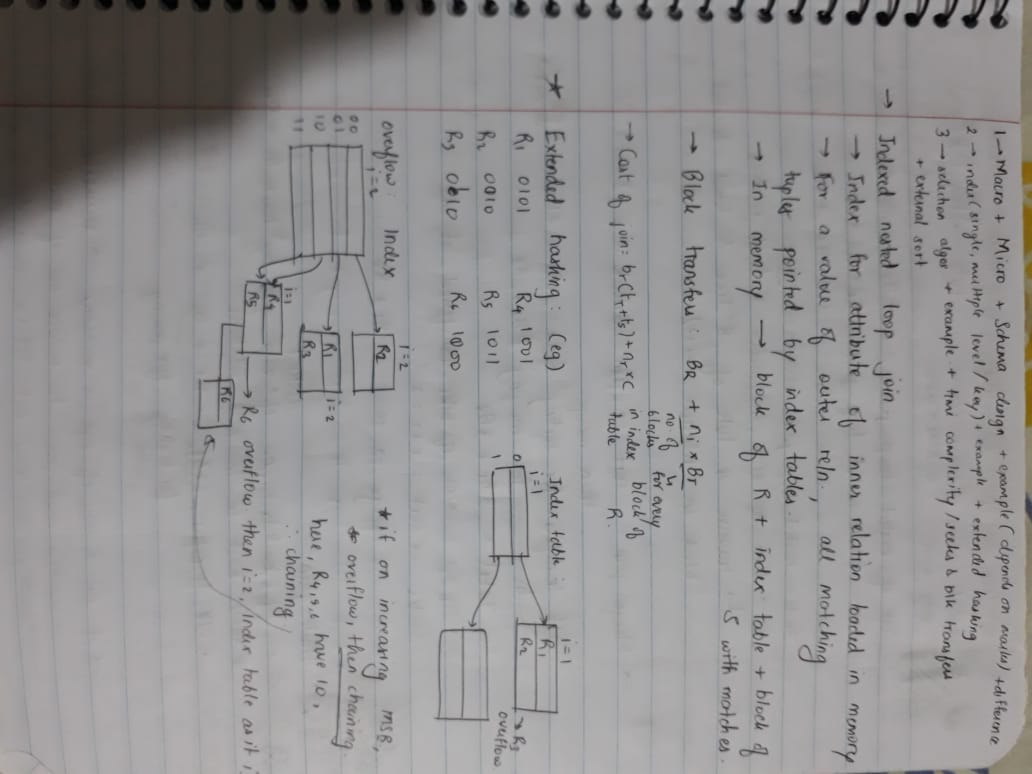 1 → Macro + Micro + Schema design + example (depends on marks) + difference
2 → index (single, multiple level / key) + example + extended hashing
3 → selection algos + example + time complexity / seeks & blk transfers
+ external sort
→ Indexed nested loop join
→ Index for attribute of inner relation loaded in memory
→ For a value of outer reln., all matching
tuples pointed by index tables.
→ In memory → block of R + index table + block of
S with matches.
→ Block transfers: BR + ni × Br
no. of
blocks
in index
table
for every
block of
R.
→ Cost of join: br(tT + tS) + nr × C
* Extended hashing: (eg)
R1 0101 R4 1001
R2 0010 R5 1011
R3 0610 R6 1000
Index table:
i=1
0
1
i=1
R1
R2
→ R3
overflow
overflow: Index
i=2
00
01
10
11
i=2
R2
R1 i=2
R3
i=1
R4
R5
→ R6 overflow then i=2, index table as it i
R6
* if on increasing MSB,
overflow, then chaining
here, R4,5,6 have 10,
∴ chaining